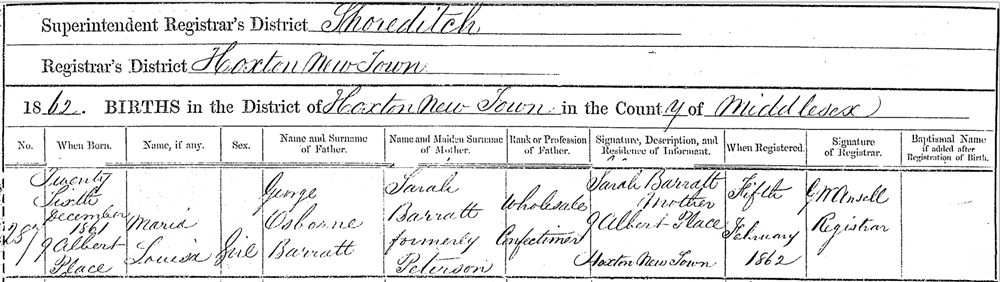 Superintendent Registrar's District Shoreditch
Registrar's District Hoxton New Town
1862. BIRTHS in the District of Hoxton New Town in the County of Middlesex
No. When Born. Name, if any. Sex. Name and Surname of Father. Name and Maiden Surname of Mother. Rank or Profession of Father. Signature, Description, and Residence of Informant. When Registered. Signature of Registrar. Baptismal Name if added after Registration of Birth.
287
Twenty
Sixth
December
1861
9 Albert
Place
Maria
Louisa
Girl
George
Osborne
Barratt
Sarah
Barratt
formerly
Peterson
Wholesale
Confectioner
Sarah Barratt
Mother
9 Albert Place
Hoxton New Town
Fifth
February
1862
G W Ansell
Registrar